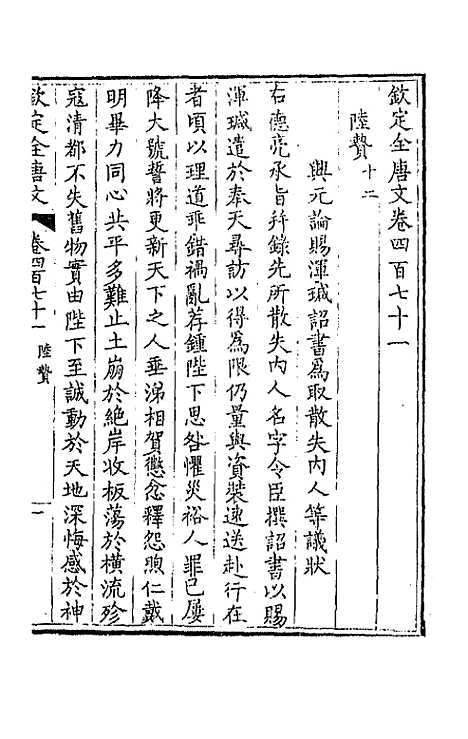 欽定全唐文卷四百七十一
陸贄十二
興元論賜渾瑊詔書為取散失內人等議狀
右德亮承旨幷錄先所散失內人名字令臣撰詔書以賜
渾瑊遣於奉天尋訪以得為限仍量與資裝速送赴行在
者頃以理道乖錯禍亂荐鍾陛下思咎懼災裕人罪己屢
降大號誓將更新天下之人垂涕相賀懲忿釋怨煦仁戴
明畢力同心共平多難止土崩於絕岸收板蕩於橫流殄
寇清都不失舊物實由陛下至誠動於天地深悔感於神
欽定全唐文
卷四百七十一
陸贄
一